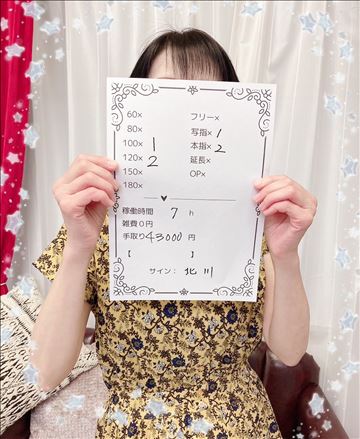 60×
フリー×
80×
写指× 1
100× 1
本指× 2
120× 2
延長×
150×
OP×
180×
稼働時間 7 h
雑費0円
手取り 43000 円
【 】
サイン： 北川